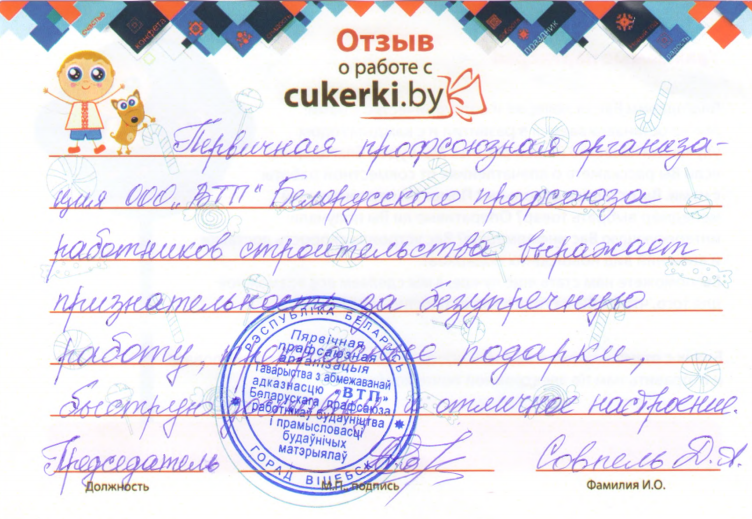 Отзыв
о работе с
cukerki.by
Первичная профсоюзная организа-
ция ООО „ВТП“ Белорусского профсоюза
работников строительства выражает
признательность за безупречную
работу, подарки,
быструю и отличное настроение.
РЭСПУБЛІКА БЕЛАРУСЬ
Пярвічная
прафсаюзная
арганізацыя
Таварыства з абмежаванай
адказнасцю «ВТП»
Беларускага прафсаюза
работнікаў будаўніцтва
і прамысловасці
будаўнічых
матэрыялаў
ГОРАД ВІЦЕБСК
Председатель Совпель Д.А.
Должность М.П., подпись Фамилия И.О.